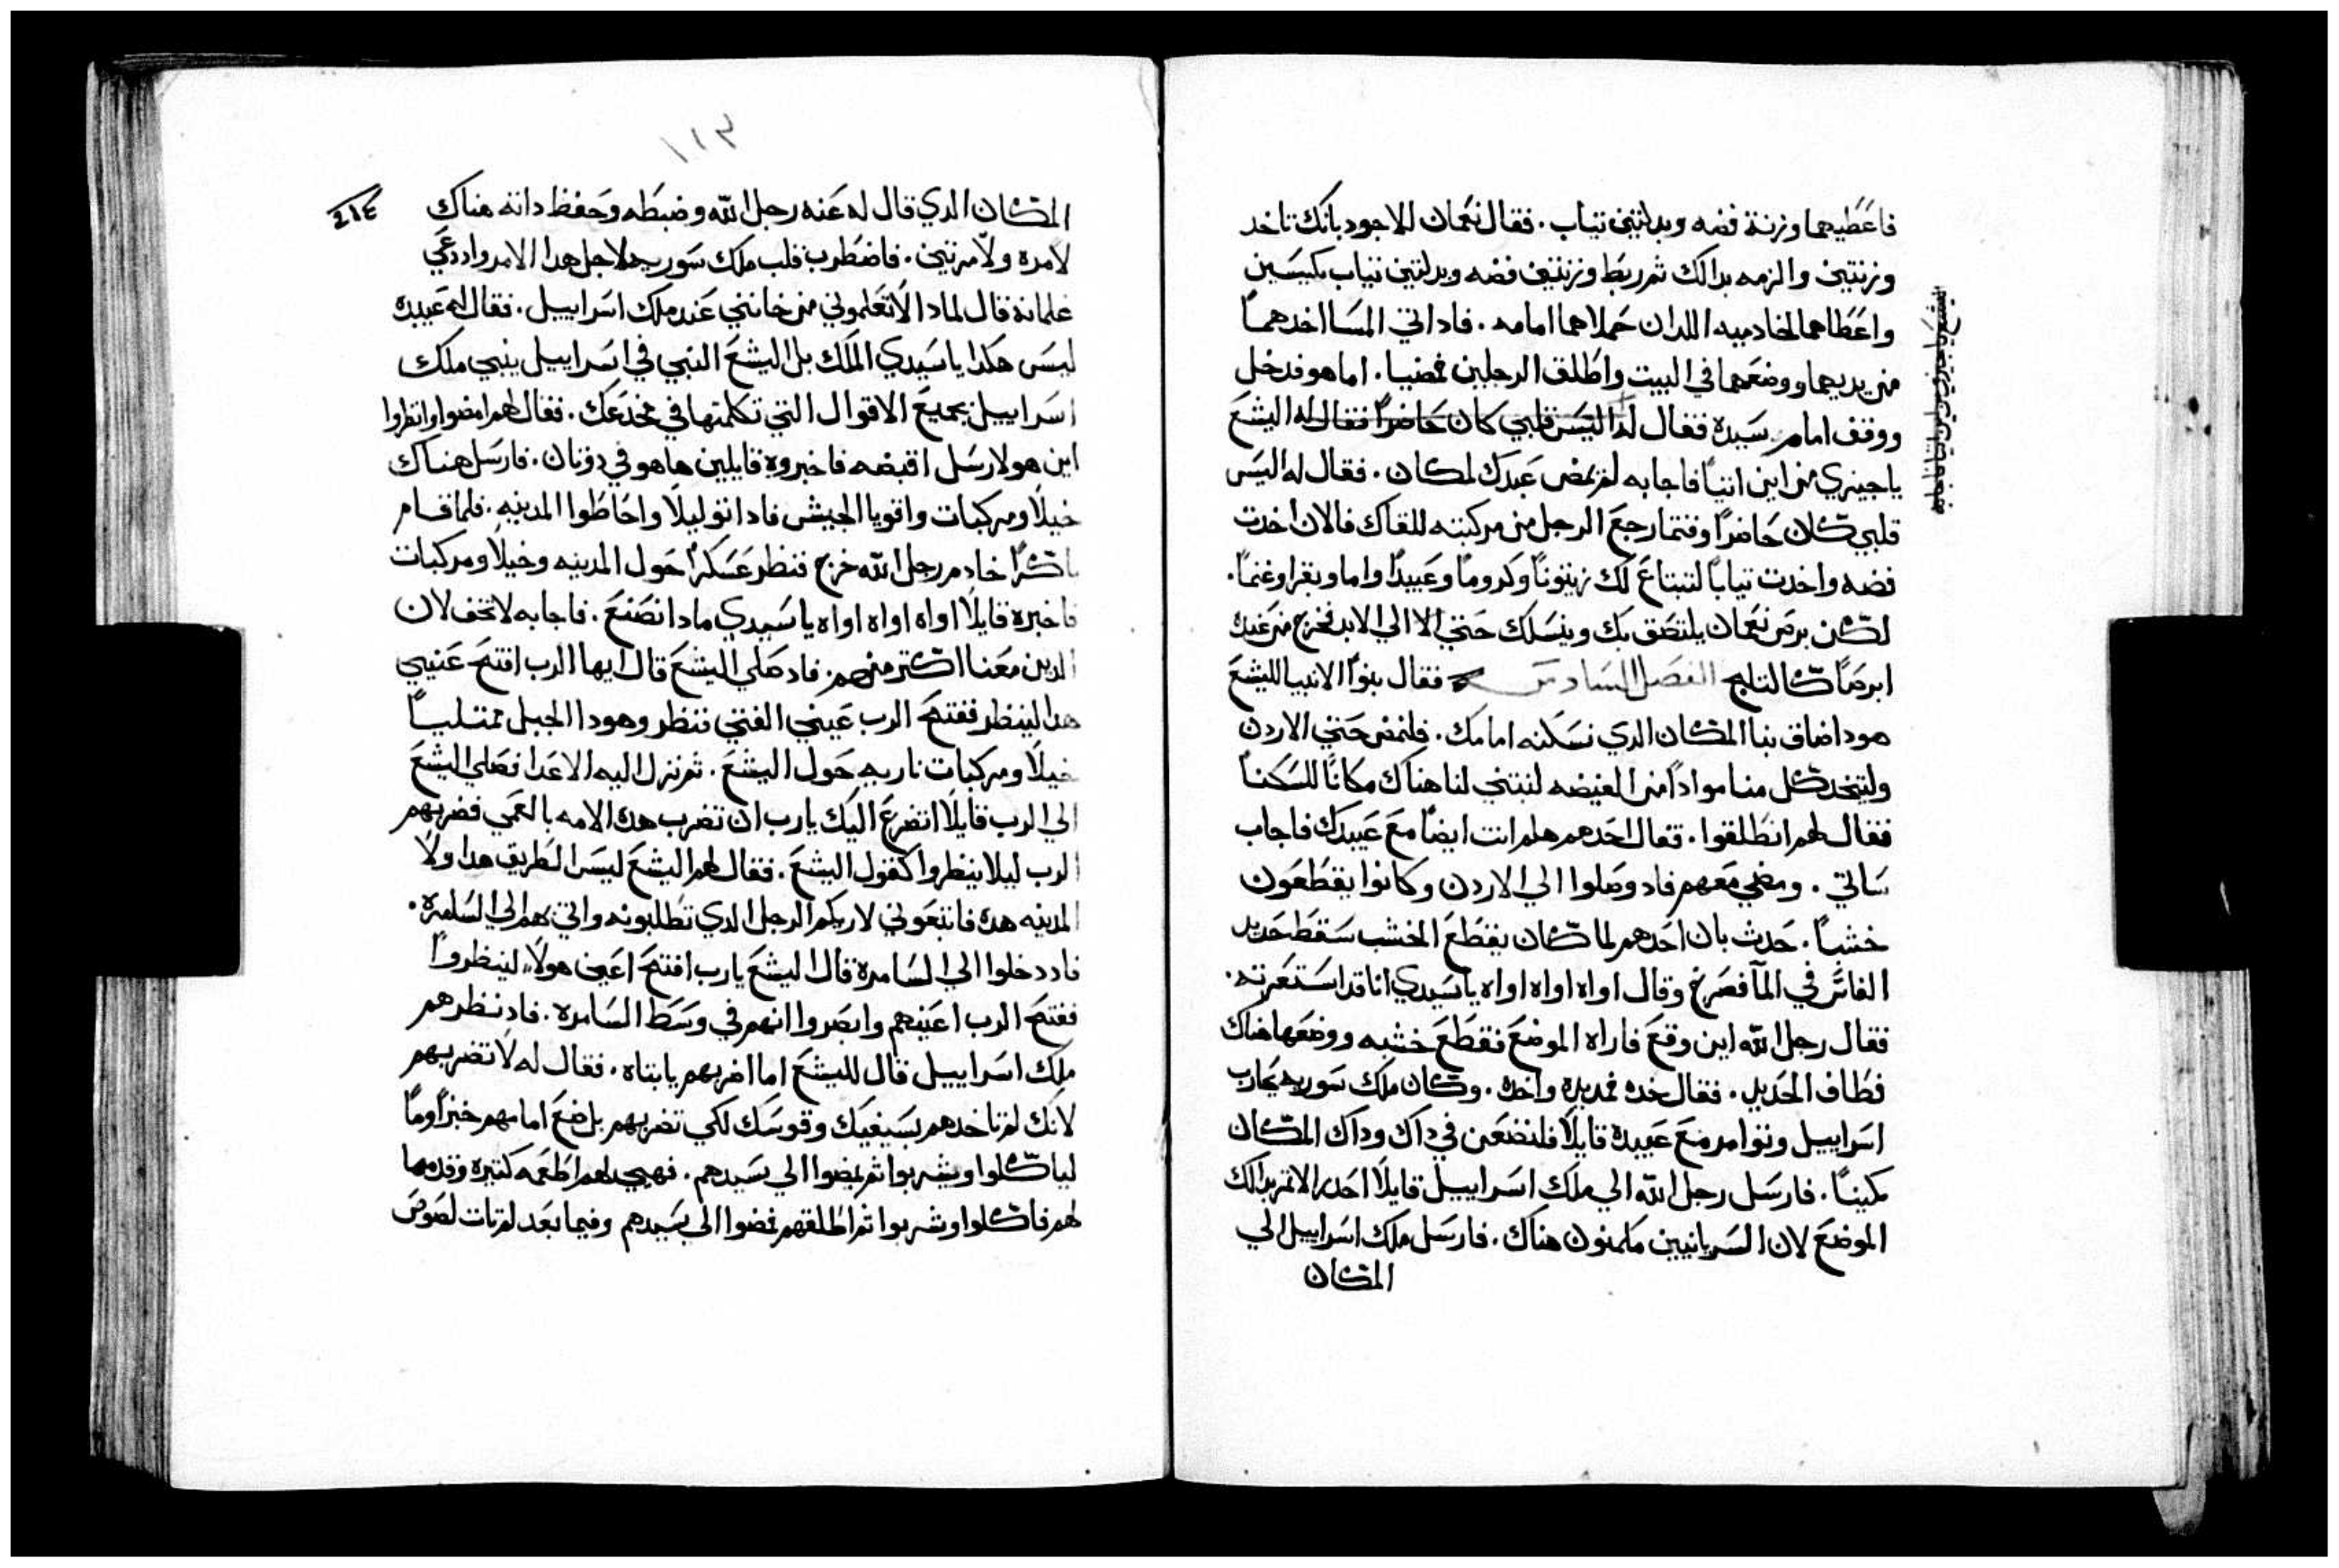 فاعطيهما وزنة فضه وبدلتين تياب. فقال نعمان للاجود بانك تاخد
وزنتين والزمه بدالك تمر ربط وزنتين فضه وبدلتين تياب بكيسين
واعطاهما لخادميه اللدان حملاهما امامه. فاد اتي المسا اخدهما
من يديهما ووضعهما في البيت واطلق الرجلين فمضيا. اما هو فدخل
ووقف امام سيده فقال له اليس قلبي كان حاضراً فقال له اليشع
ياجيزي من اين اتيت فاجابه لم يمض عبدك لمكان. فقال له اليس
قلبي كان حاضراً وقتما رجع الرجل من مركبته للقاك فالان اخدت
فضه واخدت تياباً لتبتاع لك زيتوناً وكروماً وعبيداً واما وبقرا وغنماً.
لكن برص نعمان يلتصق بك وبنسلك حتي الا الي الابد فخرج من عنده
ابرصاً كالتلج الفصل السادس فقال بنوا الانبيا لليشع
هودا ضاق بنا المكان الدي نسكنه امامك. فلنمض حتي الاردن
وليتخد كل منا مواداً من الغيضه لنبتني لنا هناك مكاناً للسكنا
فقال لهم انطلقوا. تقال احدهم هلم انت ايضاً مع عبيدك فاجاب
ساتي. ومضي معهم فاد وصلوا الي الاردن وكانوا يقطعون
خشباً. حدث بان احدهم لما كان يقطع الخشب سقط حديد
الفاس في الما فصرخ وقال اواه اواه اواه ياسيدي انا قد استعرته.
فقال رجل الله اين وقع فاراه الموضع فقطع خشبه ووضعها هناك
فطاف الحديد. فقال خده فمد يده واخده. وكان ملك سوريه يحارب
اسراييل وتوامر مع عبيده قايلاً فلنضعن في داك وداك المكان
مكيناً. فارسل رجل الله الي ملك اسراييل قايلاً احدر الا تمر بدالك
الموضع لان السريانيين مكمنون هناك. فارسل ملك اسراييل الي
المكان
١١٣
٢١٤
المكان الدي قال له عنه رجل الله وضبطه وحفظ داته هناك
لامره ولامرتين. فاضطرب قلب ملك سوريه لاجل هدا الامر واد دعي
غلمانه قال لمادا لا تعلموني من خانني عند ملك اسراييل. فقال له عبيده
ليس هكدا ياسيدي الملك بل اليشع النبي في اسراييل ينبي ملك
اسراييل بجميع الاقوال التي تكلمتها في مخدعك. فقال لهم امضوا وانظروا
اين هو لارسل اقبضه فاخبروه قايلين ها هو في دوتان. فارسل هناك
خيلاً ومركبات واقويا الجيش فاد اتوا ليلاً واحاطوا المدينه. فلما قام
باكراً خادم رجل الله خرج فنظر عسكراً حول المدينه وخيلاً ومركبات
فاخبره قايلاً اواه اواه اواه ياسيدي مادا نصنع. فاجابه لا تخف لان
الدين معنا اكتر منهم. فاد صلي اليشع قال ايها الرب افتح عيني
هدا لينظر ففتح الرب عيني الفتي فنظر وهودا الجبل ممتلياً
خيلاً ومركبات ناريه حول اليشع. تم نزل اليه الاعدا فصلي اليشع
الي الرب قايلاً اتضرع اليك يارب ان تضرب هده الامه بالعمي فضربهم
الرب ليلا ينظروا كقول اليشع. فقال لهم اليشع ليس الطريق هدا ولا
المدينه هده فاتبعوني لاريكم الرجل الدي تطلبونه واتي بهم الي السامره.
فاد دخلوا الي السامره قال اليشع يارب افتح اعين هولاء لينظروا
ففتح الرب اعينهم وابصروا انهم في وسط السامره. فاد نظرهم
ملك اسراييل قال لليشع اما اضربهم يا ابتاه. فقال له لا تضربهم
لانك لم تاخدهم بسيفك وقوسك لكي تضربهم بل ضع امامهم خبزاً وماً
لياكلوا ويشربوا تم يمضوا الي سيدهم. فهيي لهم اطعمه كتيره وقدمها
لهم فاكلوا وشربوا تم اطلقهم فمضوا الي سيدهم وفيما بعد لم تات لصوص